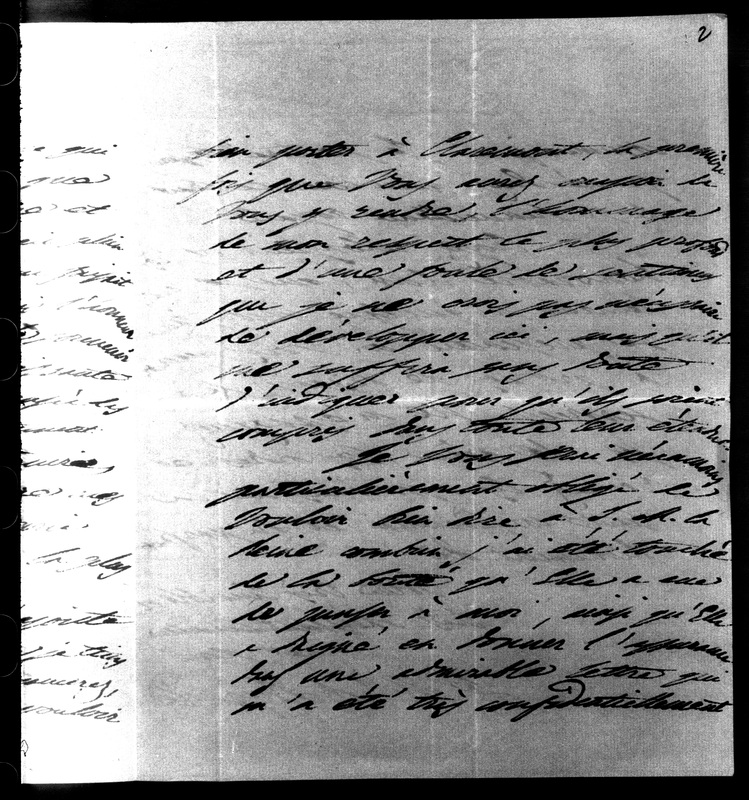 2
bien porter à Claremont, la première
fois que Vous aurez occasion de
Vous y rendre, l'hommage
de mon respect le plus profond
et d'une foule de sentimens
que je ne crois pas nécessaire
de développer ici, mais qu'il
me suffira sans doute
d'indiquer pour qu'ils soient
compris dans toute leur étendue.
Je Vous serai néanmoins
particulièrement obligé de
Vouloir bien dire à S. M. la
Reine combien j'ai été touché
de la bonté qu'Elle a eue
de penser à moi, ainsi qu'Elle
a daigné en donner l'assurance
dans une admirable lettre qui
m'a été très confidentiellement
a qui
que
et
esprit
l'honneur
la plus
vouloir